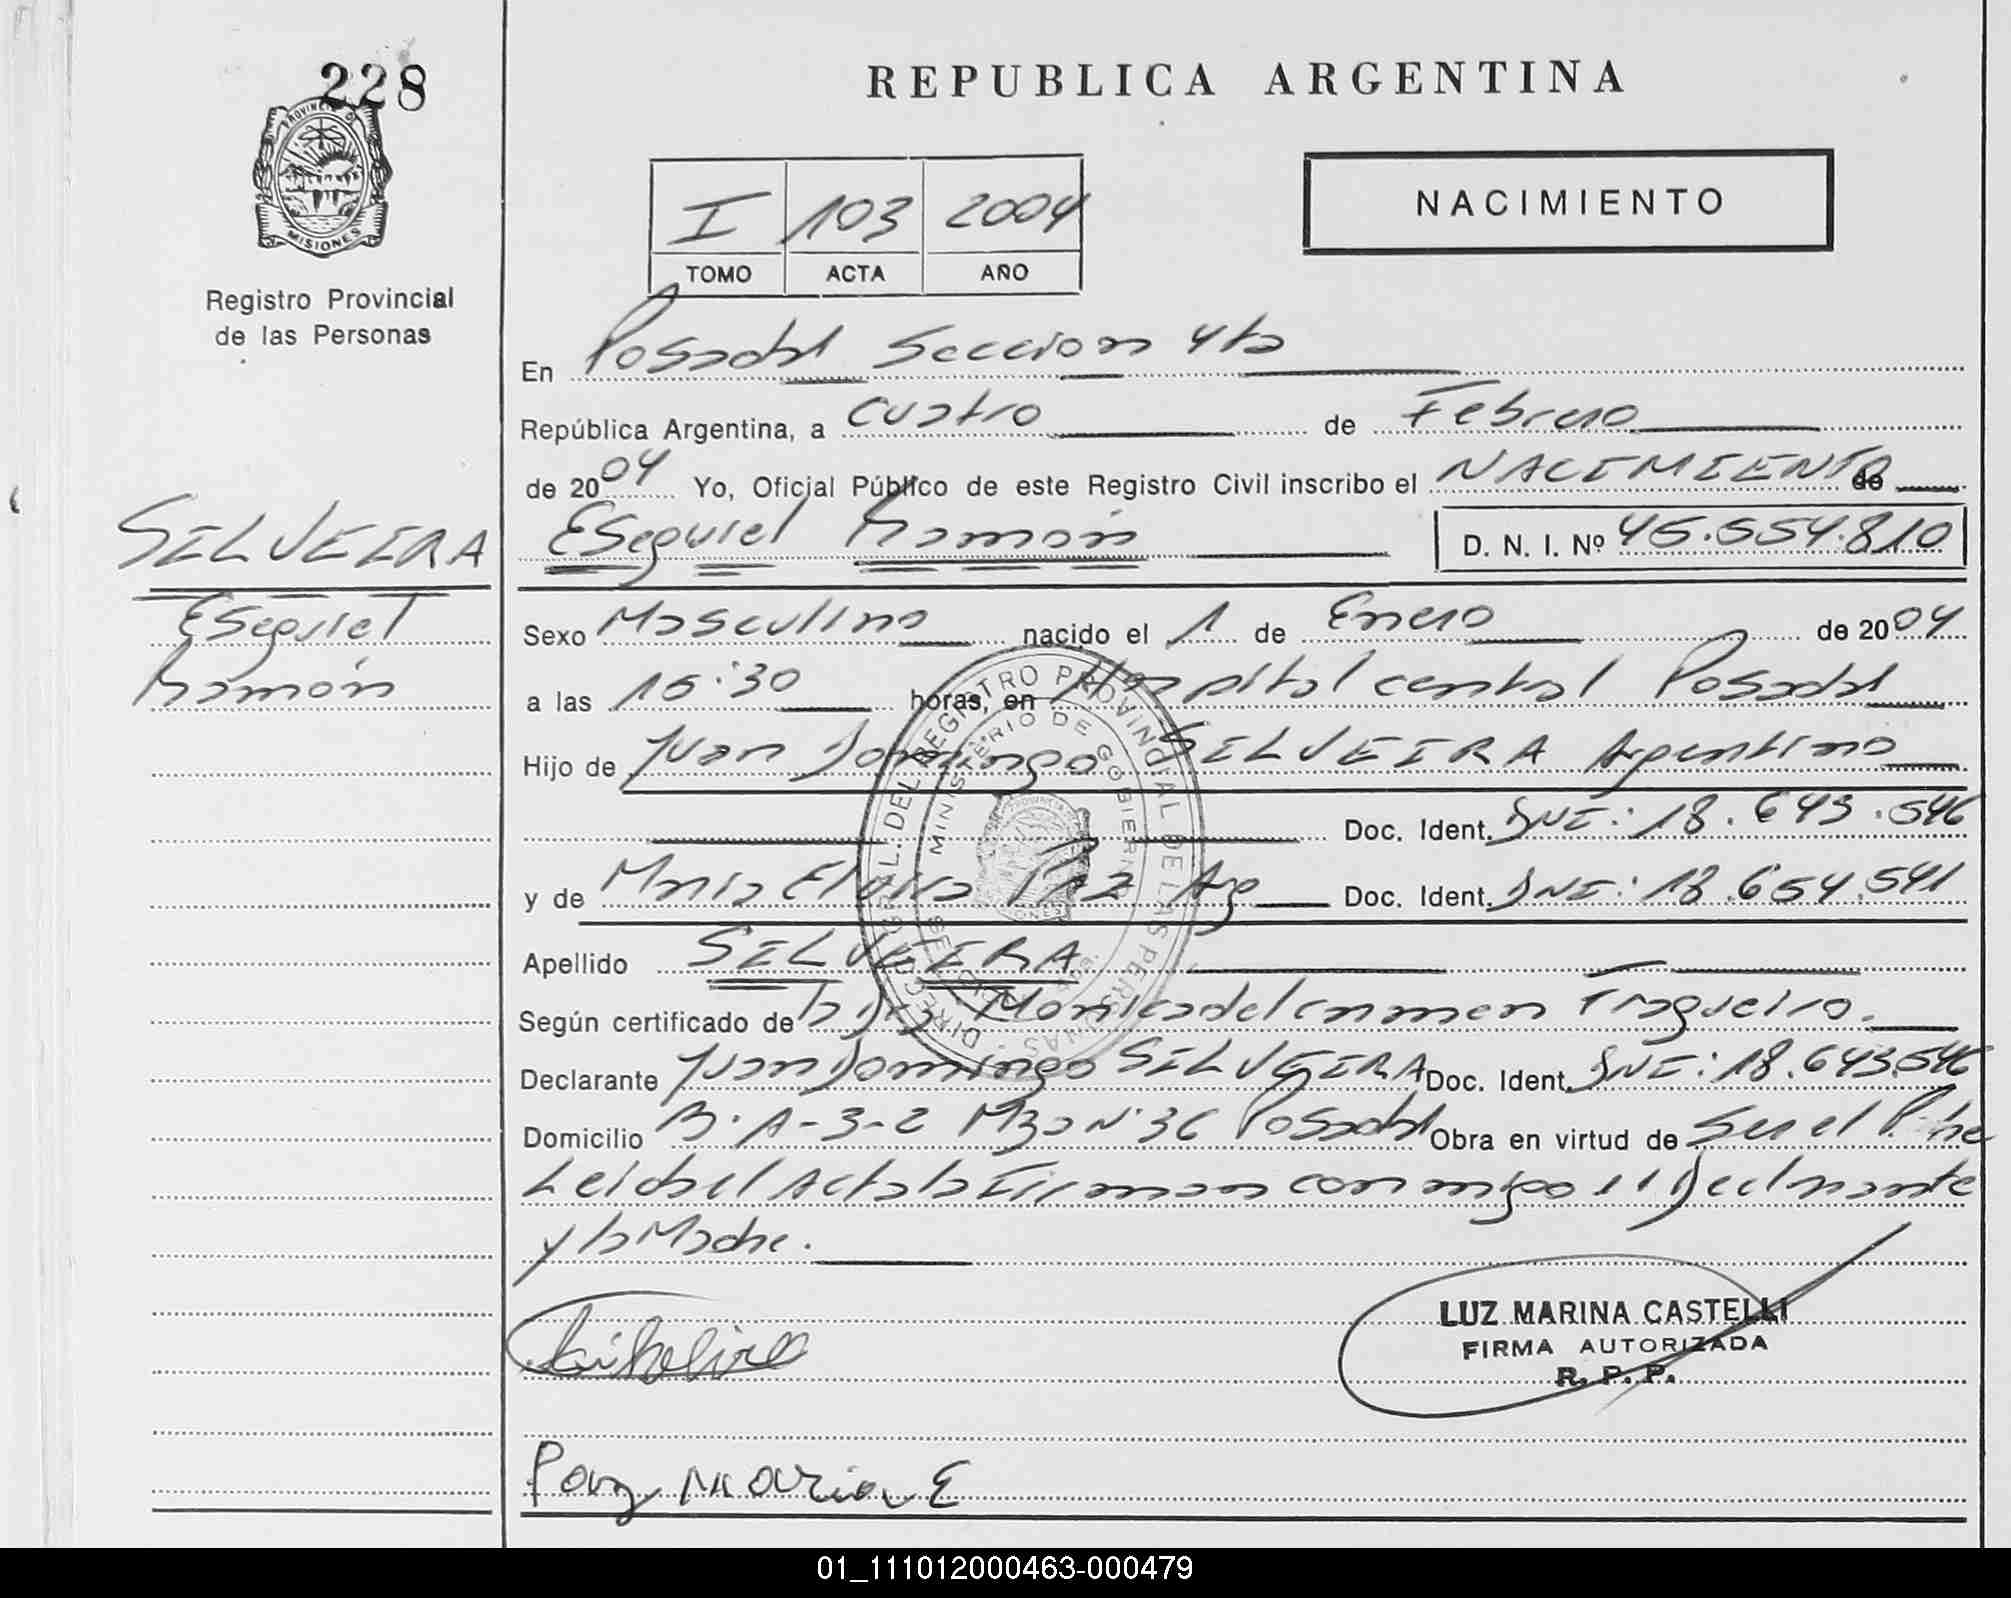 228
PROVINCIA DE
MISIONES
Registro Provincial
de las Personas
REPUBLICA ARGENTINA
I 103 2004
TOMO ACTA AÑO
NACIMIENTO
En Posadas Seccion 4ta
República Argentina, a Cuatro de Febrero
de 2004 Yo, Oficial Público de este Registro Civil inscribo el NACIMIENTO de
SILVEIRA
Esequiel Ramón D. N. I. Nº 45.554.810
Esequiel
Ramón
Sexo Masculino nacido el 1 de Enero de 2004
a las 15:30 horas, en Hospital central Posadas
Hijo de Juan Domingo SILVEIRA Argentino
Doc. Ident. DNI: 18.643.546
y de Maria Elvira Paz Arg Doc. Ident. DNI: 18.654.541
Apellido SILVEIRA
Según certificado de la Monica del carmen Fragueiro.
Declarante Juan Domingo SILVEIRA Doc. Ident. DNI: 18.643.546
Domicilio B. A-3-2 Mzan Nº 36 Posadas Obra en virtud de Ser el Padre
Leida el Acta la Firman conmigo el Declarante
y la Madre.
LUZ MARINA CASTELLI
FIRMA AUTORIZADA
R. P. P.
Paz Maria E
DIRECC. GRAL. DEL REGISTRO PROVINCIAL DE LAS PERSONAS
MINISTERIO DE GOBIERNO
01_111012000463-000479